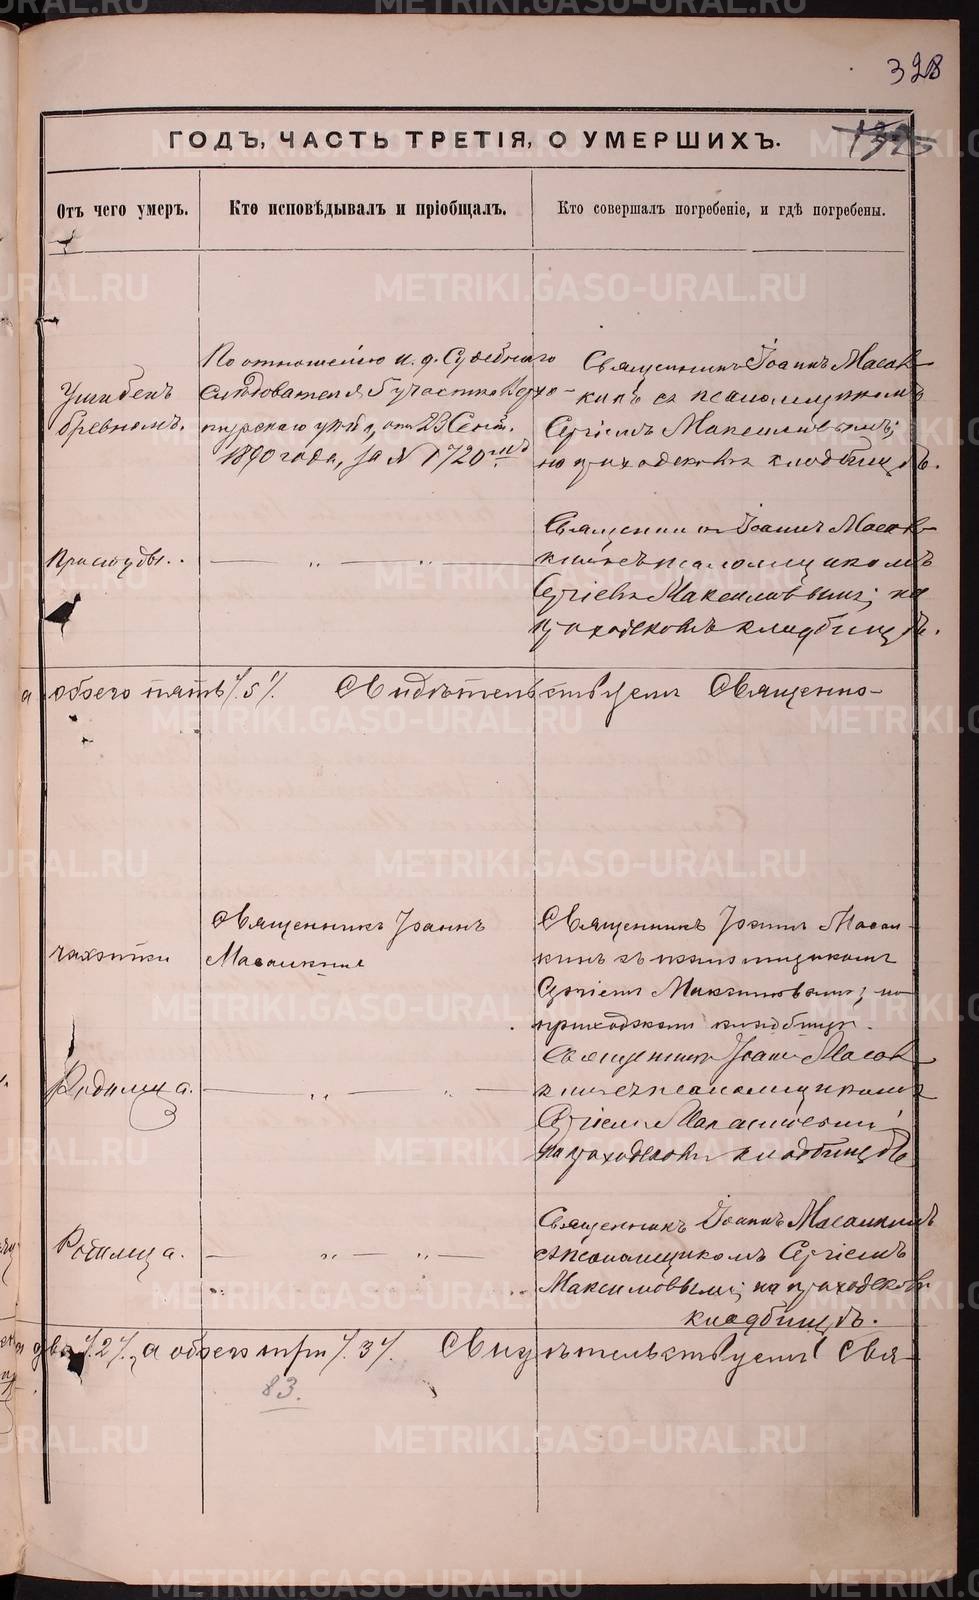 328
ГОДЪ, ЧАСТЬ ТРЕТІЯ, О УМЕРШИХЪ.
Отъ чего умеръ.
Кто исповѣдывалъ и пріобщалъ.
Кто совершалъ погребеніе, и гдѣ погребены.
Ушибенъ
бревномъ.
По отношенію и. д. Судебнаго
Слѣдователя 5 участка Верхо-
турскаго уѣзда, отъ 23 Сент.
1890 года, за № 1720мъ
Священникъ Іоаннъ Масал-
кинъ съ псаломщикомъ
Сергіемъ Максимовымъ;
на приходскомъ кладбищѣ.
Простуды.
— „ — „ —
Священникъ Іоаннъ Масал-
кинъ съ псаломщикомъ
Сергіемъ Максимовымъ; на
приходскомъ кладбищѣ.
а обоего пять /.5/. Свидѣтельствуемъ Священно-
чахотки
Священникъ Іоаннъ
Масалкинъ
Священникъ Іоаннъ Масал-
кинъ съ псаломщикомъ
Сергіемъ Максимовымъ; на
приходскомъ кладбищѣ.
Родимца.
— „ — „ —
Священникъ Іоаннъ Масал-
кинъ съ псаломщикомъ
Сергіемъ Максимовымъ;
на приходскомъ кладбищѣ
Родимца.
— „ — „ —
Священникъ Іоаннъ Масалкинъ
съ псаломщикомъ Сергіемъ
Максимовымъ; на приходскомъ
кладбищѣ.
два /.2/., а обоего три /.3/. Свидѣтельствуемъ Свя-
83.
METRIKI.GASO-URAL.RU